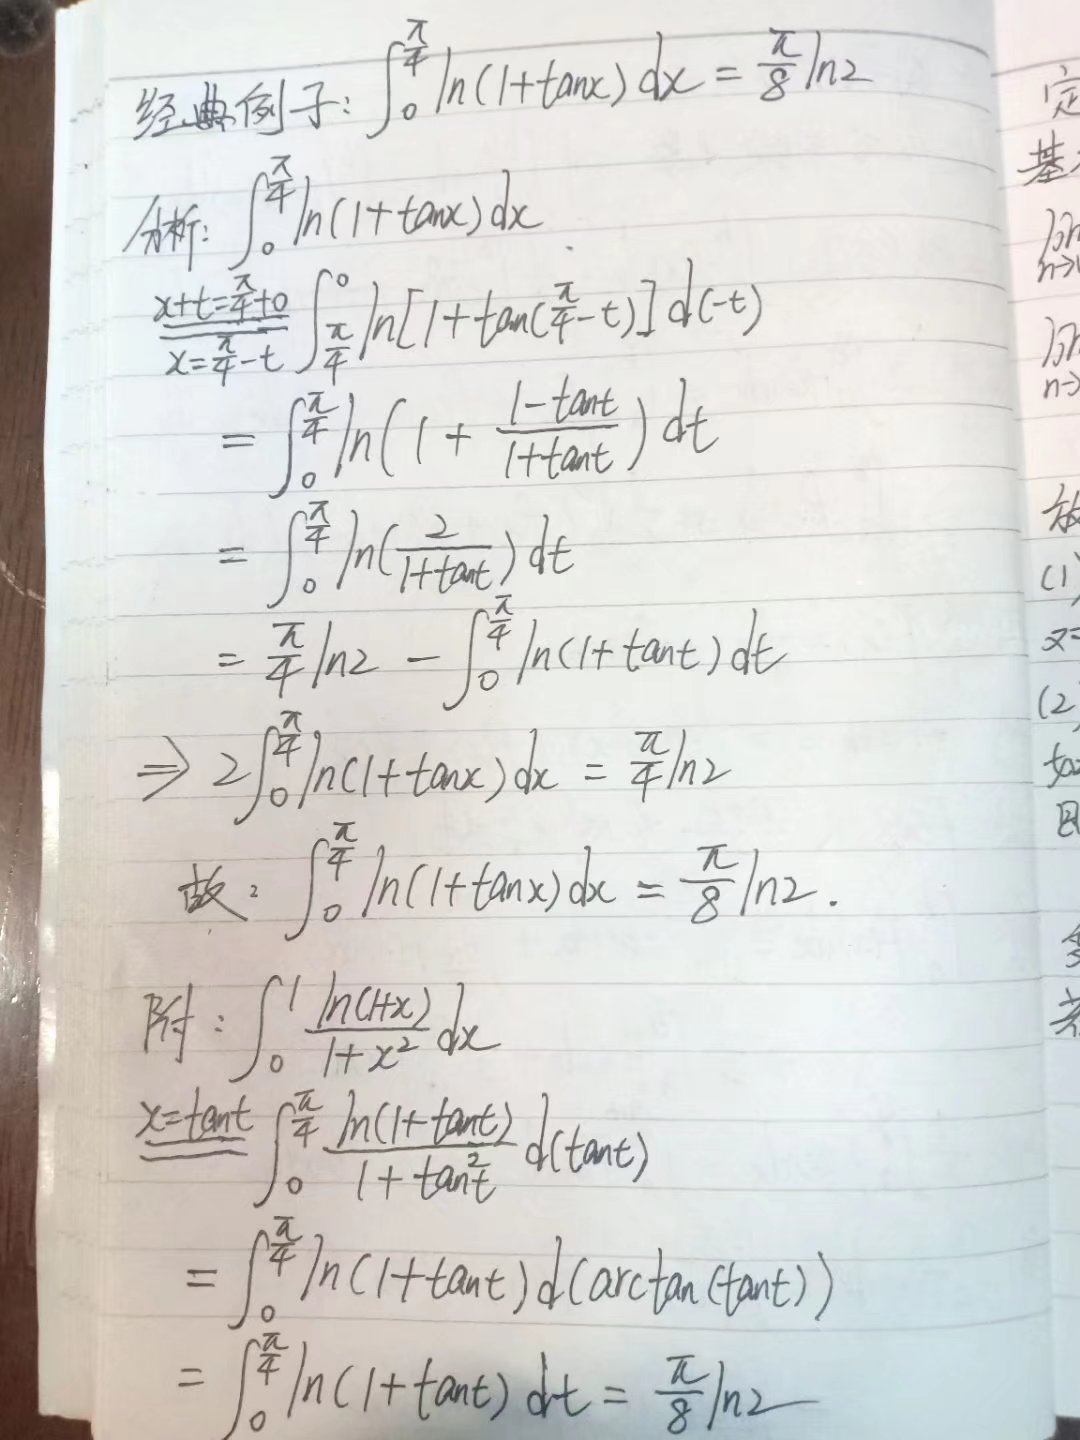 经典例子: ∫₀^(π/4) ln(1+tanx)dx = π/8 ln2
分析: ∫₀^(π/4) ln(1+tanx)dx
x+t=π/4+0 x=π/4-t ∫_(π/4)^0 ln[1+tan(π/4-t)]d(-t)
= ∫₀^(π/4) ln(1+ (1-tant)/(1+tant))dt
= ∫₀^(π/4) ln(2/(1+tant))dt
= π/4 ln2 - ∫₀^(π/4) ln(1+tant)dt
⇒ 2∫₀^(π/4) ln(1+tanx)dx = π/4 ln2
故: ∫₀^(π/4) ln(1+tanx)dx = π/8 ln2.
附: ∫₀^1 ln(1+x)/(1+x²) dx
x=tant ∫₀^(π/4) ln(1+tant)/(1+tan²t) d(tant)
= ∫₀^(π/4) ln(1+tant)d(arctan(tant))
= ∫₀^(π/4) ln(1+tant)dt = π/8 ln2
定
基
n→
n→
(1)
x=
(2